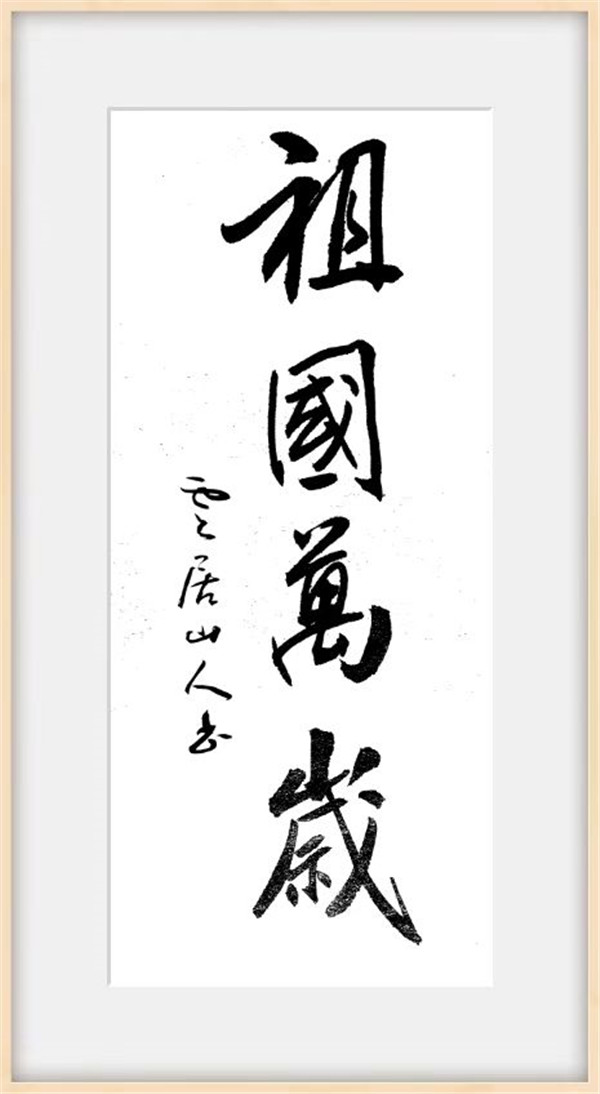 祖國萬歲
雲居山人書